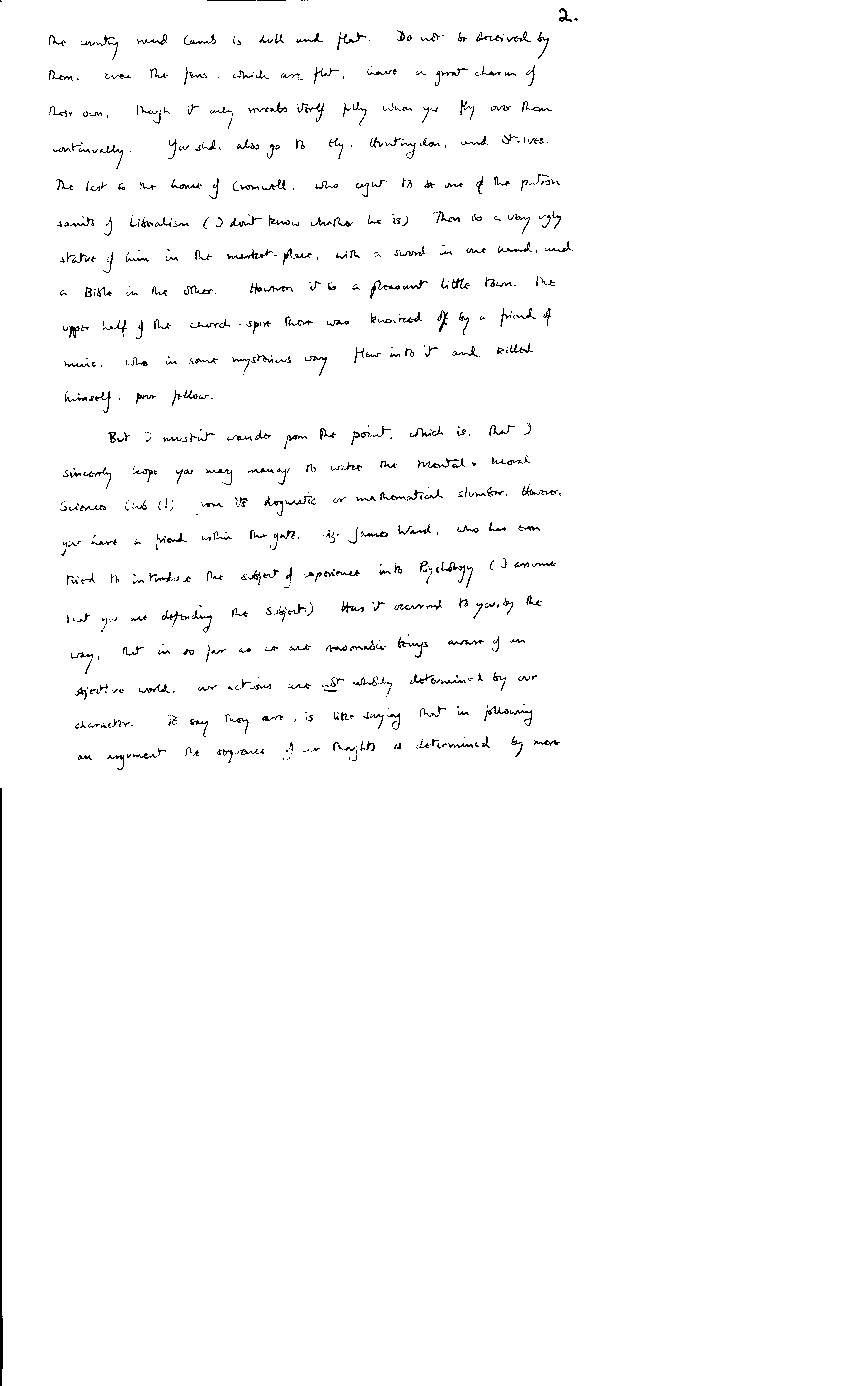 2.
the country round Camb is dull and flat. Do not be deceived by
them. Even the fens, which are flat, have a great charm of
their own, though it only reveals itself fully when you fly over them
continually. You shd. also go to Ely, Huntingdon, and St-Ives.
The last is the home of Cromwell, who ought to be one of the patron
saints of Liberalism (I don't know whether he is) There is a very ugly
statue of him in the market-place, with a sword in one hand, and
a Bible in the other. However it is a pleasant little town. The
upper half of the church-spire there was knocked off by a friend of
mine, who in some mysterious way flew into it and killed
himself, poor fellow.
But I mustn't wander from the point, which is, that I
sincerely hope you may manage to wake the Mental & Moral
Sciences Club (!) from its dogmatic or mathematical slumber. However,
you have a friend within the gate, viz. James Ward, who has even
tried to introduce the subject of experience into Psychology (I assume
that you are defending the subject.) Has it occurred to you, by the
way, that in so far as we are reasonable beings aware of an
objective world, our actions are not wholly determined by our
character. To say they are, is like saying that in following
an argument the sequence of our thoughts is determined by mere